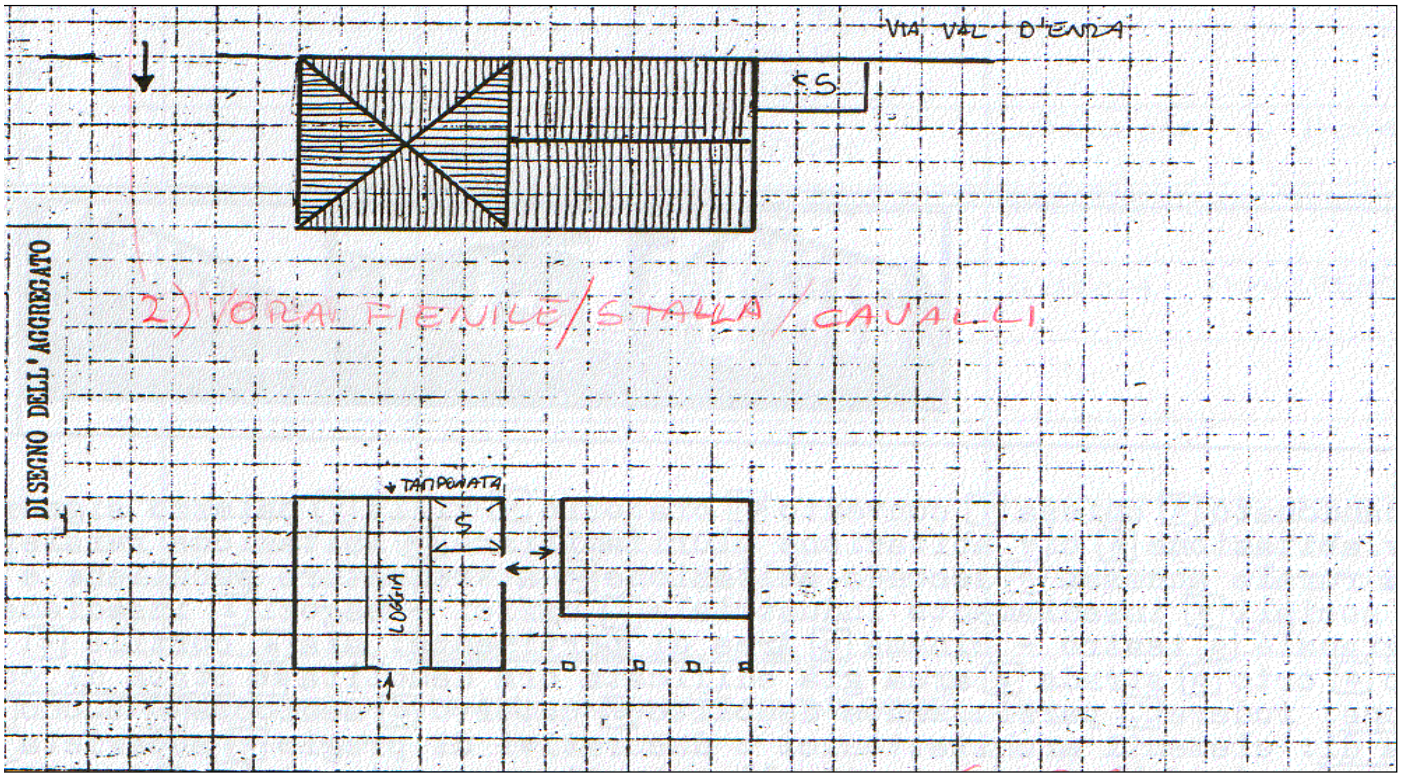 VIA VAL D'ENZA
<S
DISEGNO DELL'AGGREGATO
2) VOPLA FIENILE/STALLA/CAVALLI
TAMPONATA
S
LOGGIA